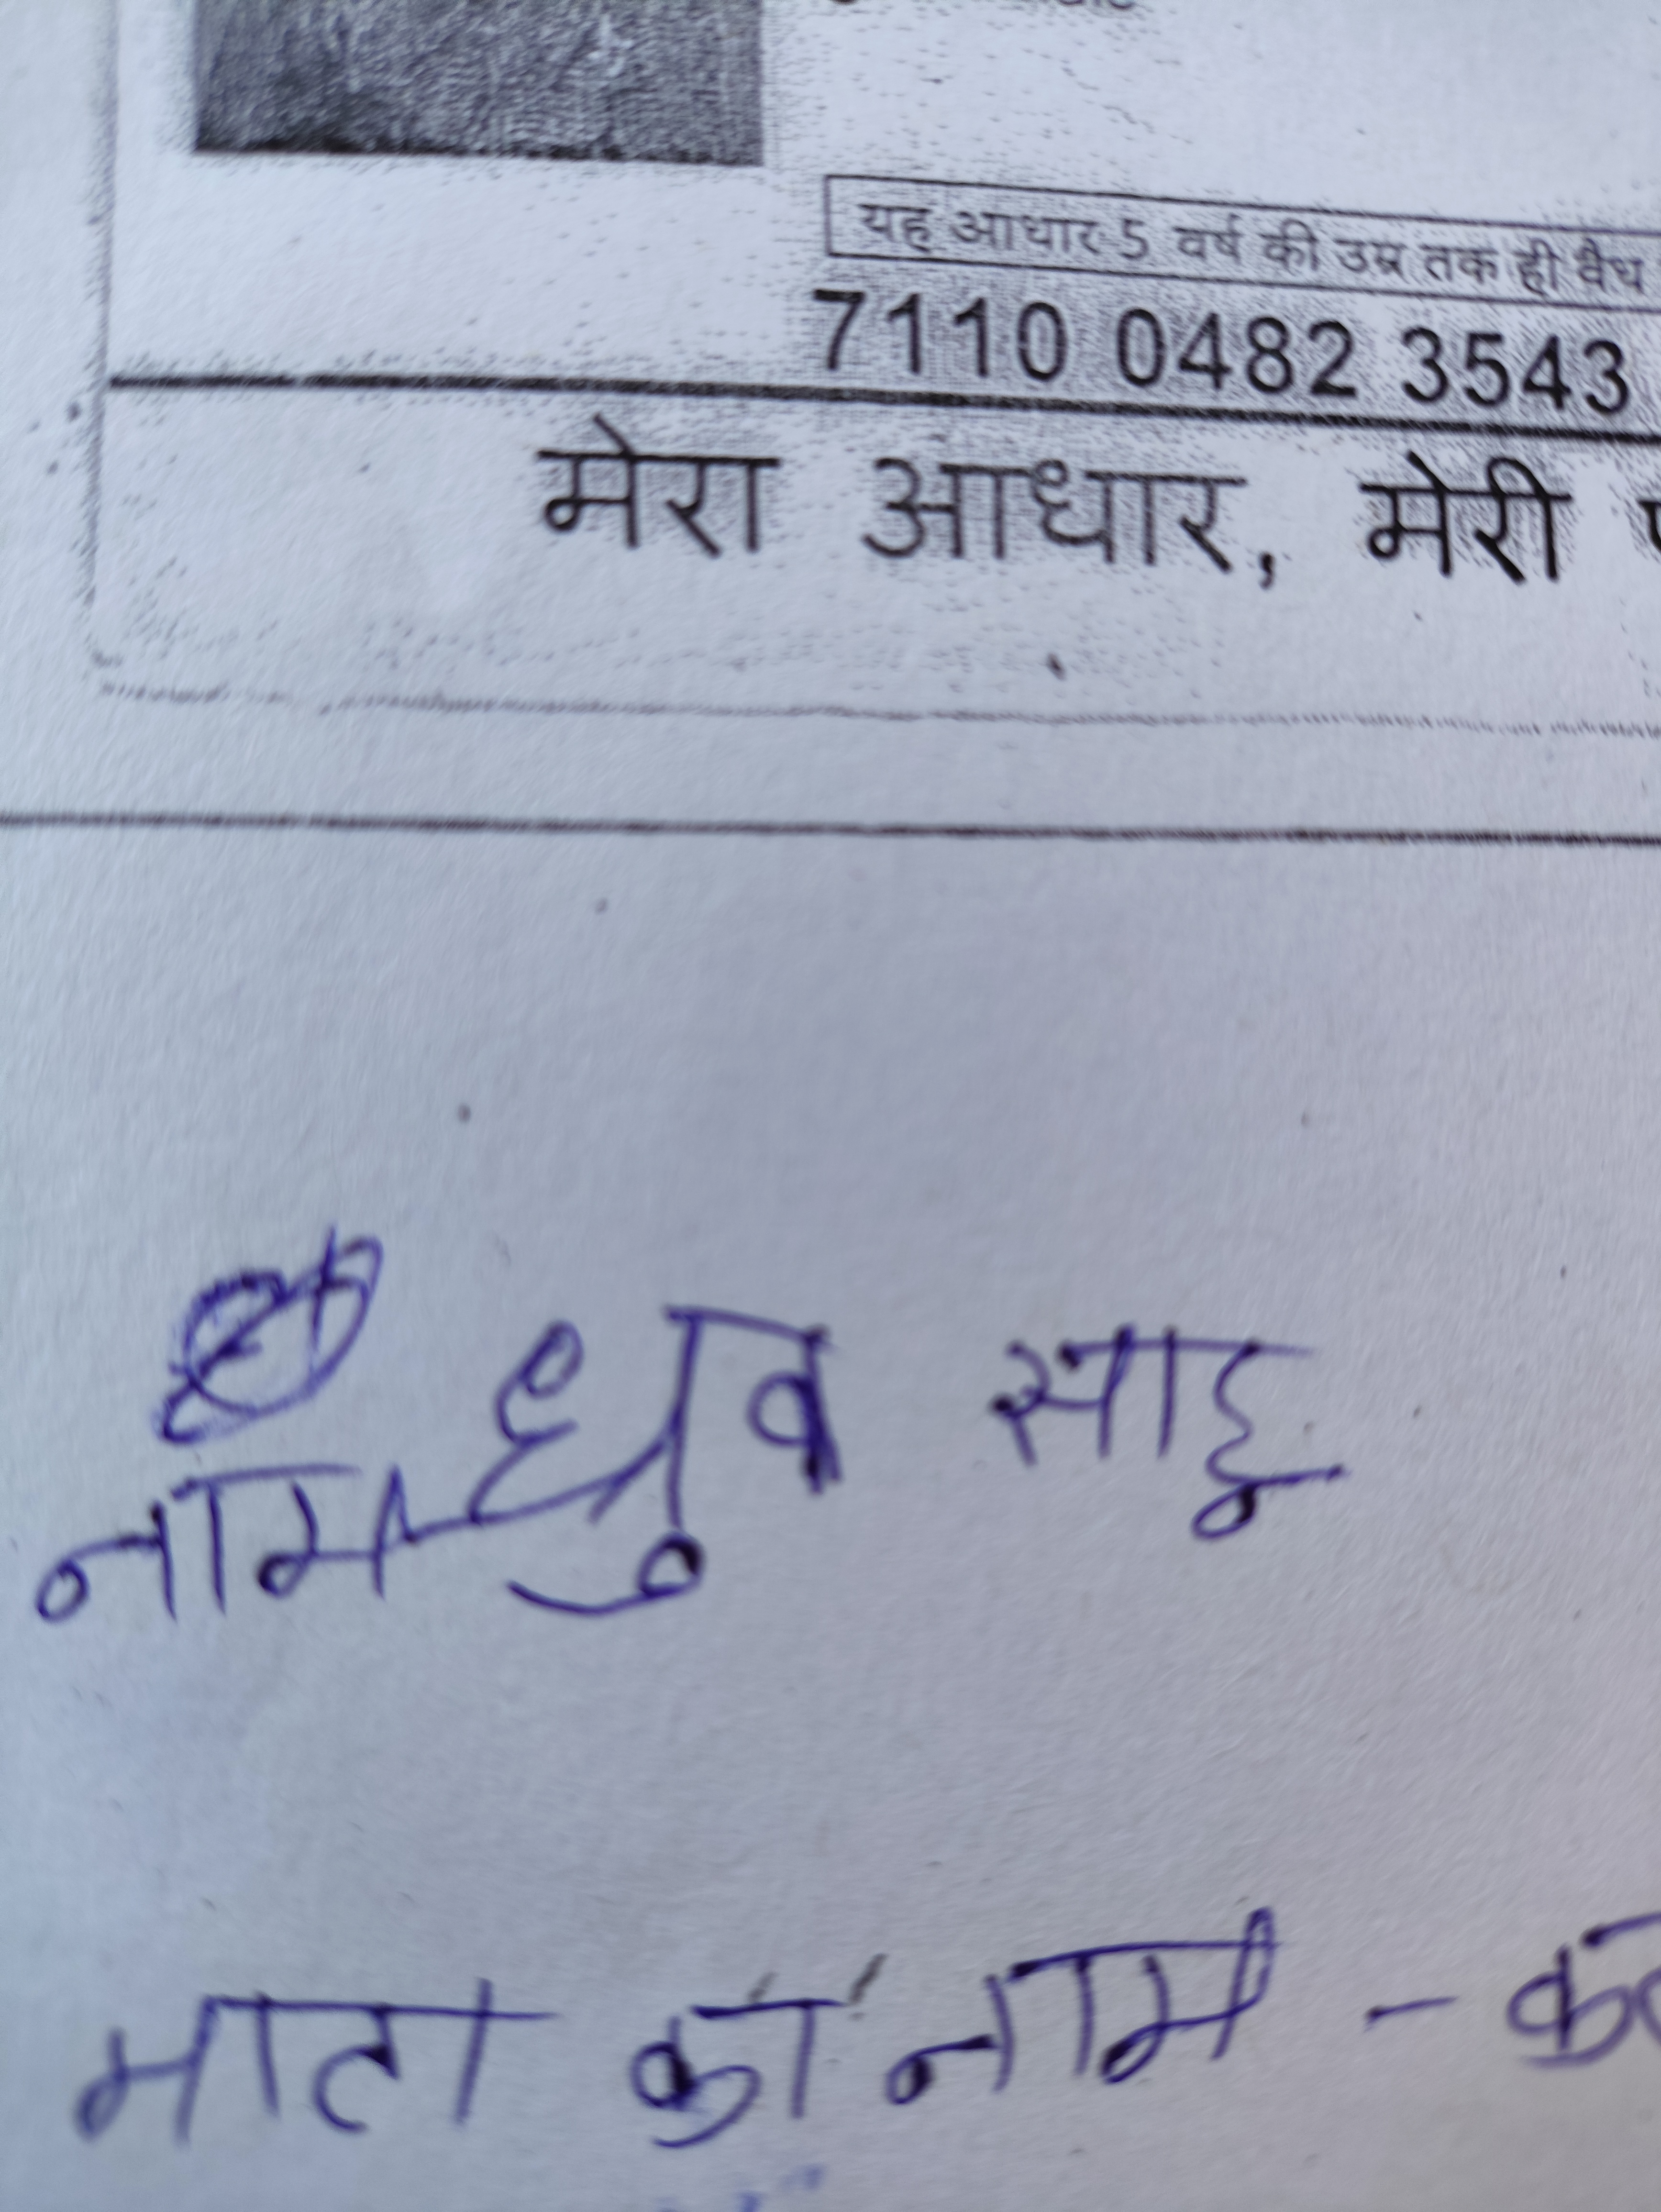 यह आधार 5 वर्ष की उम्र तक ही वैध
7110 0482 3543
मेरा आधार, मेरी
नाम ध्रुव साहू
माता का नाम -